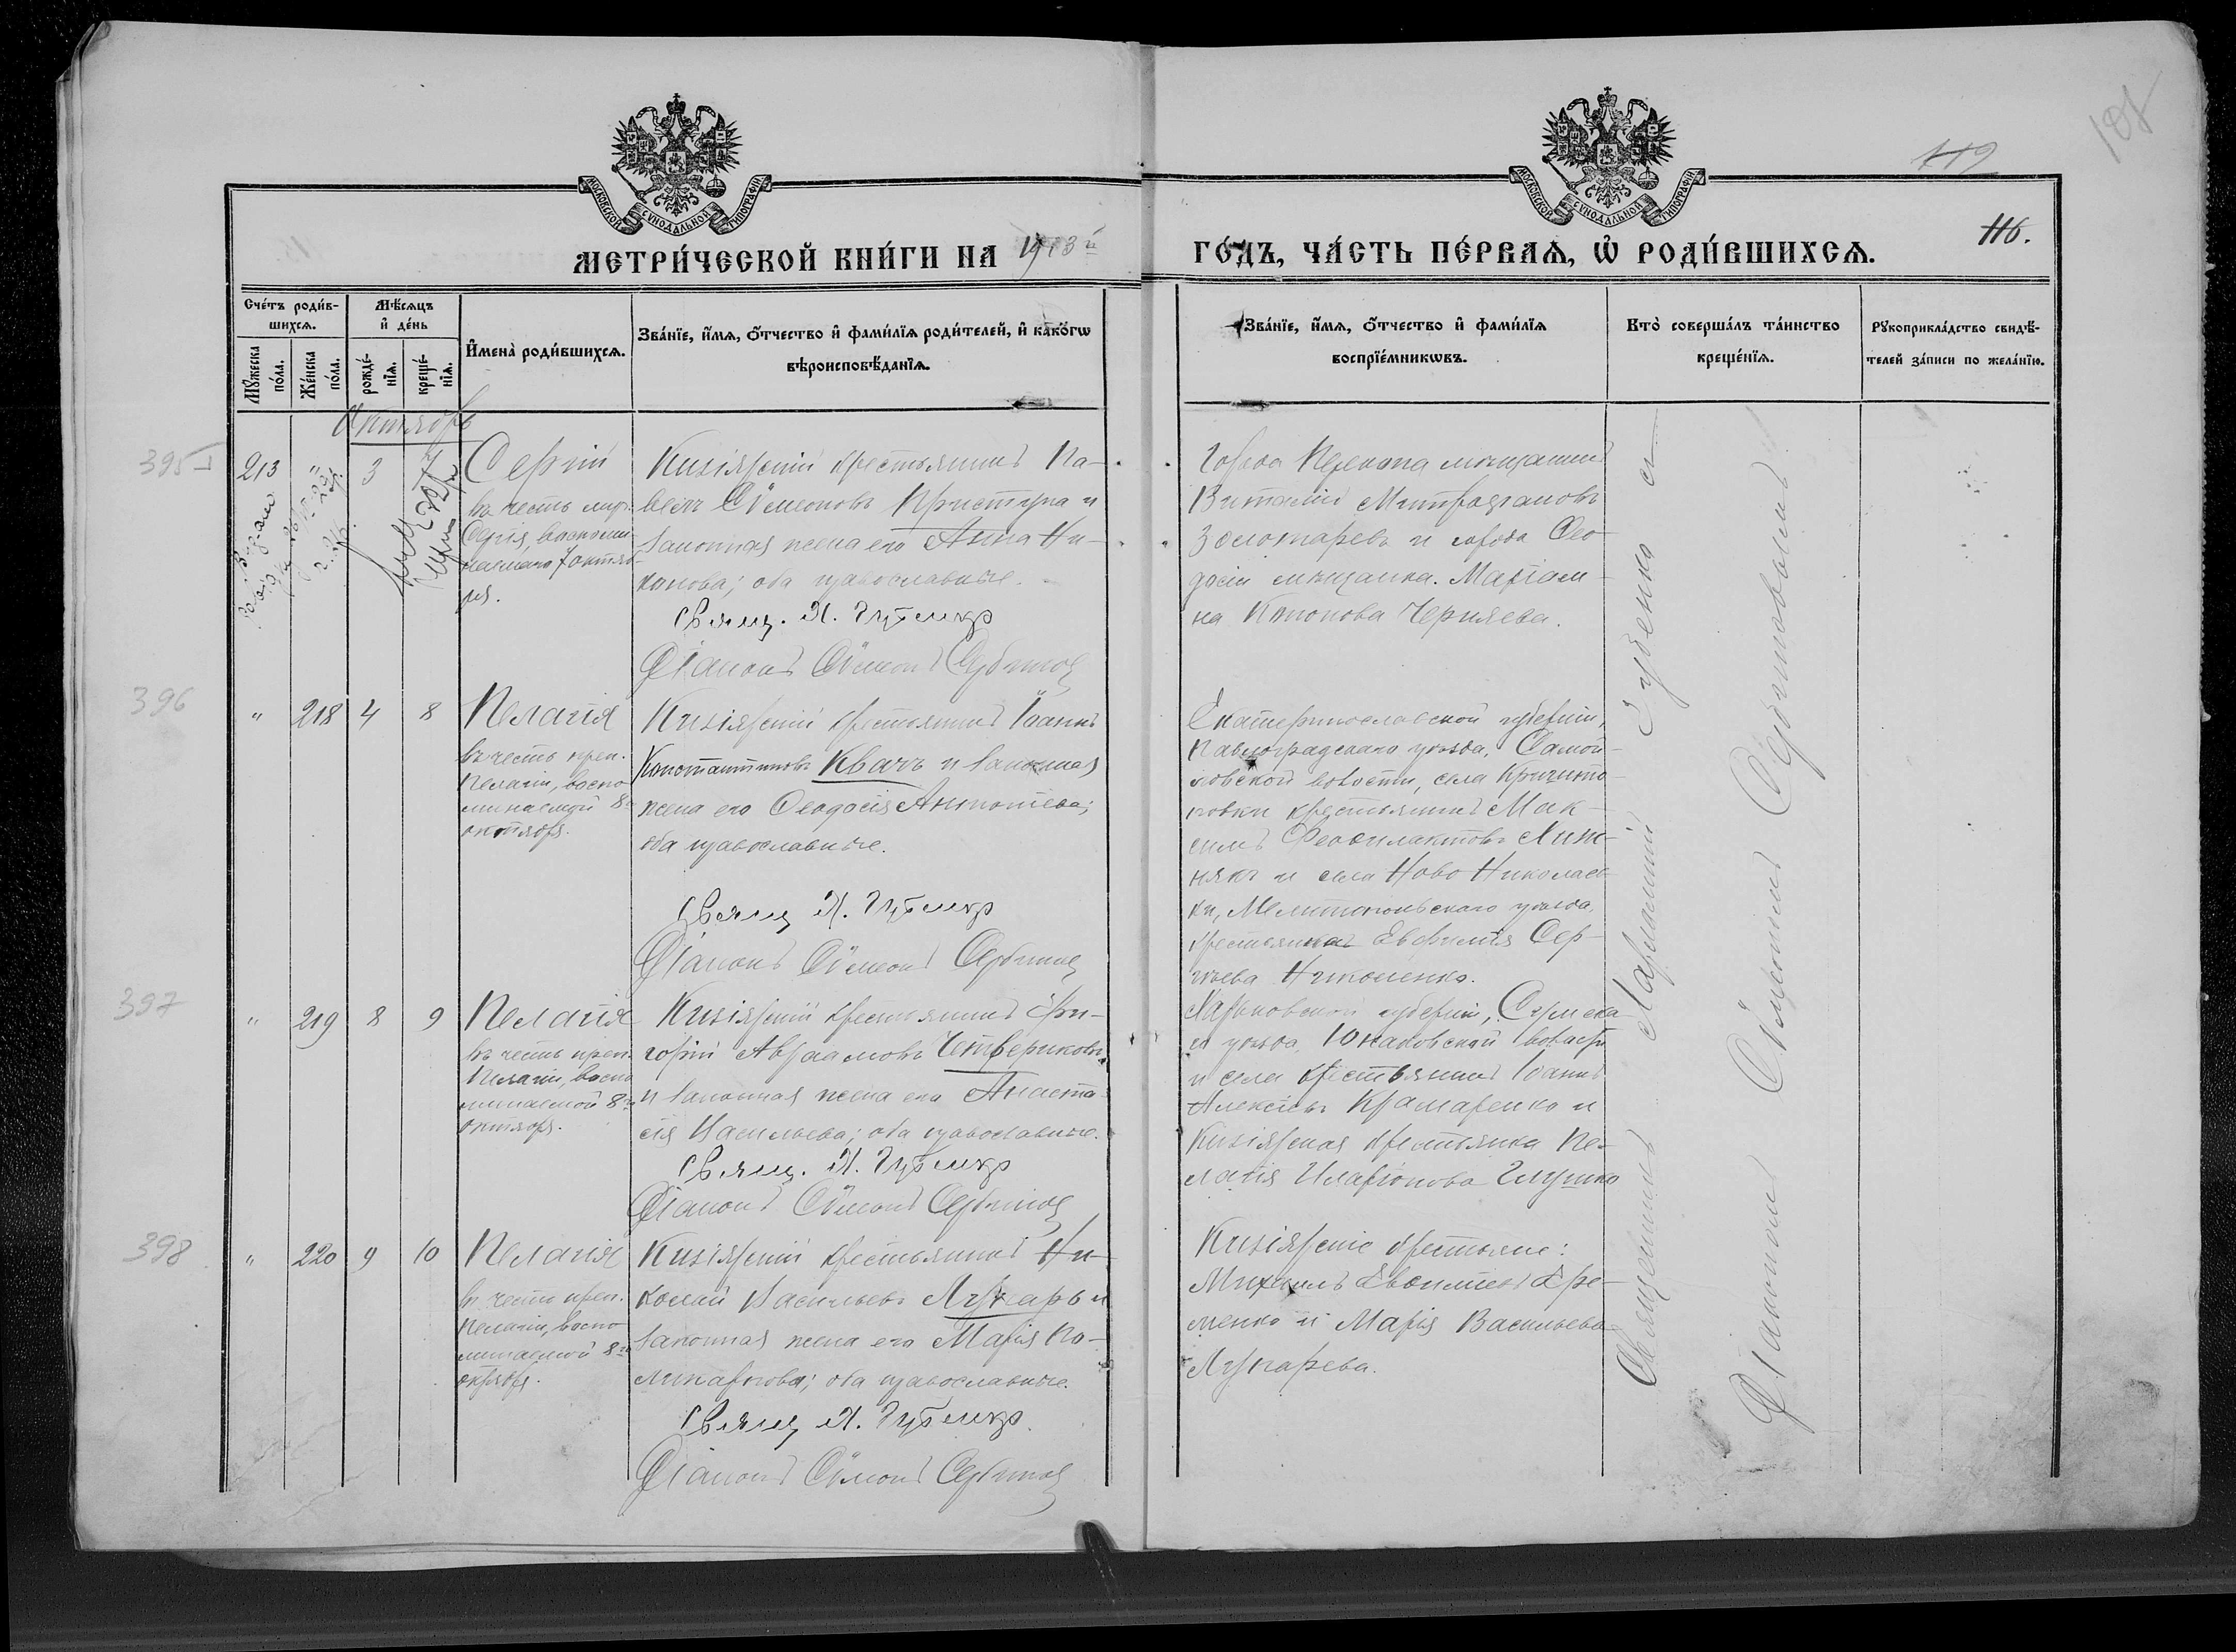 108
119
116.
МОСКОВСКОЙ СѴНОДАЛЬНОЙ ТИПОГРАФІИ
МОСКОВСКОЙ СѴНОДАЛЬНОЙ ТИПОГРАФІИ
МЕТРИ́ЧЕСКОЙ КНИ́ГИ НА 1913й
ГО́ДЪ, ЧА́СТЬ ПЕ́РВАѦ, Ѡ҆ РОДИ́ВШИХСѦ.
Сче́тъ роди́в-
шихсѧ.
Мѣ́сѧцъ
и҆ де́нь
Мꙋ́жеска
по́ла.
Же́нска
по́ла.
рожде́-
нїѧ.
креще́-
нїѧ.
И҆мена̀ роди́вшихсѧ.
Зва́нїе, и҆́мѧ, ѻ҆́тчество и҆ фами́лїѧ роди́телей, и҆ како́гѡ
вѣроисповѣ́данїѧ.
Зва́нїе, и҆́мѧ, ѻ҆́тчество и҆ фами́лїѧ
воспрїе́мникѡвъ.
Кто̀ соверша́лъ та́инство
креще́нїѧ.
Рꙋкоприкла́дство свидѣ́-
телей за́писи по жела́нїю.
Октябрь
395
213 " 3
Сергій
въ честь муч.
Сергія, воспоми-
наемаго 7 октяб-
ря.
Кизіярскій крестьянинъ Па-
велъ Сѵмеоновъ Приступа и
законная жена его Анна Ни-
конова; оба православные.
Свящ. Л. Губенко
Діаконъ Сѵмеонъ Сербиновъ
Города Перекопа мѣщанинъ
Виталій Митрофановъ
Золотаревъ и города Ѳео-
досіи мѣщанка Маріам-
на Кононова Черняева.
396
" 218 4 8
Пелагія
въ честь преп.
Пелагіи, воспо-
минаемой 8го
октября.
Кизіярскій крестьянинъ Іоаннъ
Константиновъ Квачъ и законная
жена его Ѳеодосія Антоніева;
оба православные.
Свящ. Л. Губенко
Діаконъ Сѵмеонъ Сербиновъ
Екатеринославской губерніи,
Павлоградскаго уѣзда, Самой-
ловской волости, села
крестьянинъ Мак-
симъ Ѳеофилактовъ
и села Ново Николаев-
ки, Мелитопольскаго уѣзда,
крестьянка Евфимія Сер-
гѣева Николенко.
397
" 219 8 9
Пелагія
въ честь преп.
Пелагіи, воспо-
минаемой 8го
октября.
Кизіярскій крестьянинъ Гри-
горій Авраамовъ Четвериковъ
и законная жена его Анаста-
сія Васильева; оба православные.
Свящ. Л. Губенко
Діаконъ Сѵмеонъ Сербиновъ
Харьковской губерніи, Сумска-
го уѣзда, Юнаковской волости
и села крестьянинъ Іоаннъ
Алексіевъ Крамаренко и
Кизіярская крестьянка Пе-
лагія Иларіонова Глушко
398
" 220 9 10
Пелагія
въ честь преп.
Пелагіи, воспо-
минаемой 8го
октября.
Кизіярскій крестьянинъ Ни-
колай Васильевъ Лункарь и
законная жена его Марія По-
ликарпова; оба православные.
Свящ. Л. Губенко.
Діаконъ Сѵмеонъ Сербиновъ
Кизіярскіе крестьяне:
Михаилъ Евѳиміевъ Ере-
менко и Марія Васильева
Лункарева.
Священникъ Губенко съ
Діакономъ Сѵмеономъ Сербиновымъ